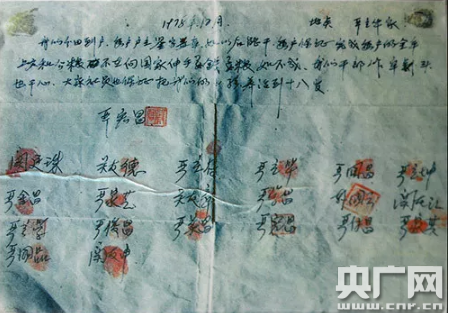 1978年12月 地点 严立华家
我们分田到户,每户户主签字盖章,如以后能干,每户保证完成每户的全年
上交和公粮,不在向国家伸手要钱要粮,如不成,我们干部作牢刹头
也干心,大家社员也保证把我们的小孩养活到十八岁
严宏昌
关廷珠 关友德 严立符 严立华 严国昌 严立坤
严金昌 严家芝 关友章 严学昌 韩国云 关友江
严立学 严俊昌 严美昌 严宏昌 严付昌
严国品 关友申
央广网
www.cnr.cn